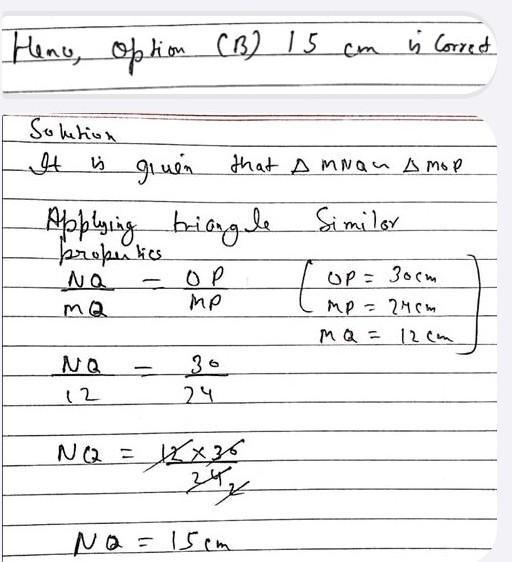 Hence, option (B) 15 cm is Correct
Solution
It is given that Δ MNQ ~ Δ MOP
Applying triangle Similar
properties
NQ/MQ = OP/MP [ OP = 30cm
MP = 24cm
MQ = 12cm ]
NQ/12 = 30/24
NQ = 12 × 30/24 2
NQ = 15cm